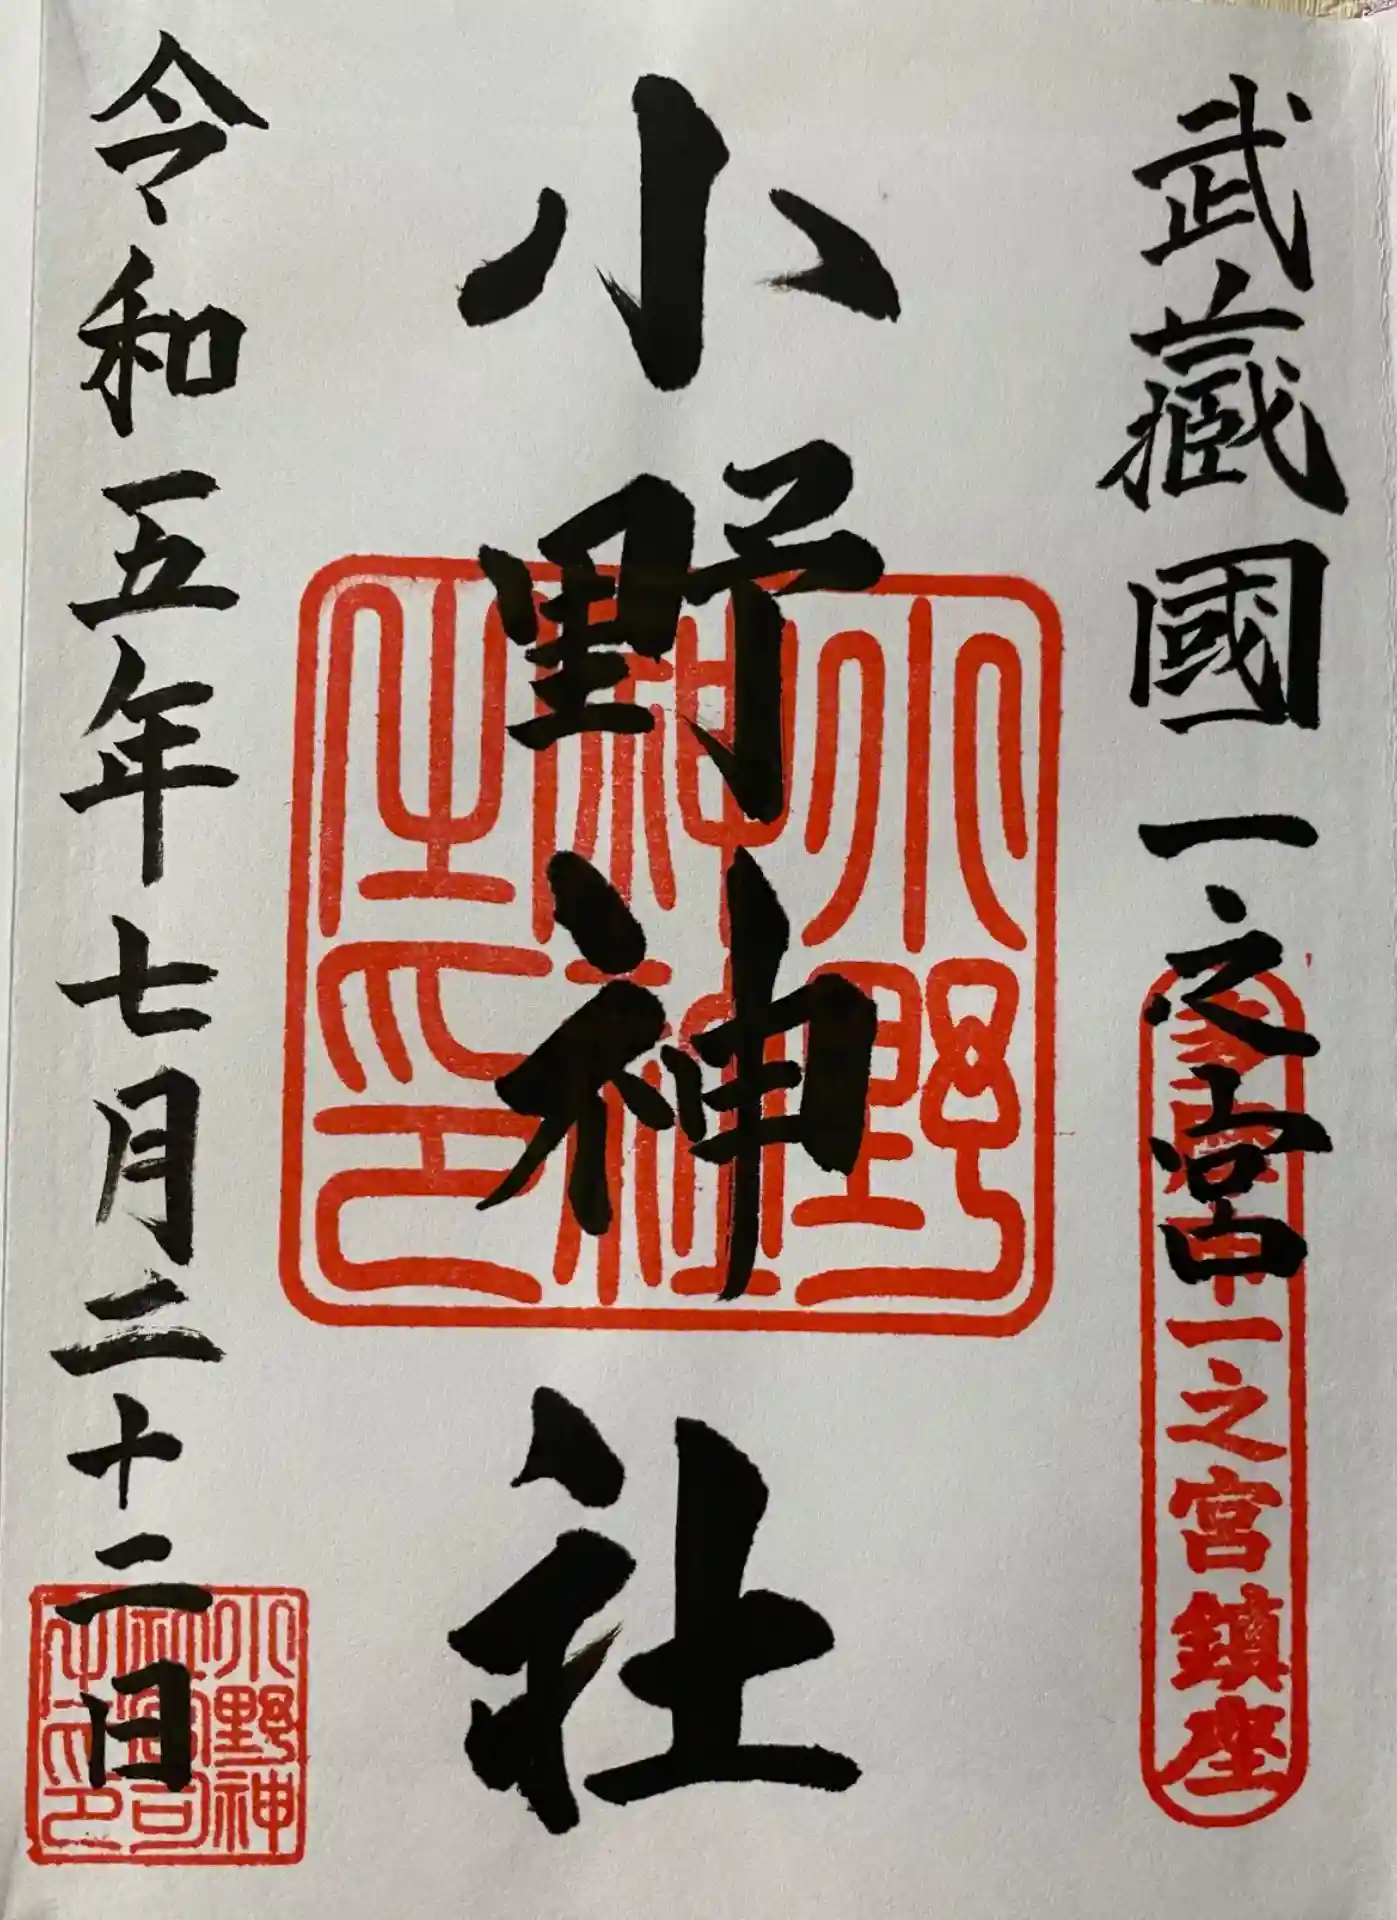 武藏國一之宮
多摩市一之宮鎮座
小野神社
小野神社之印
令和五年七月二十二日
小野神社宮司之印